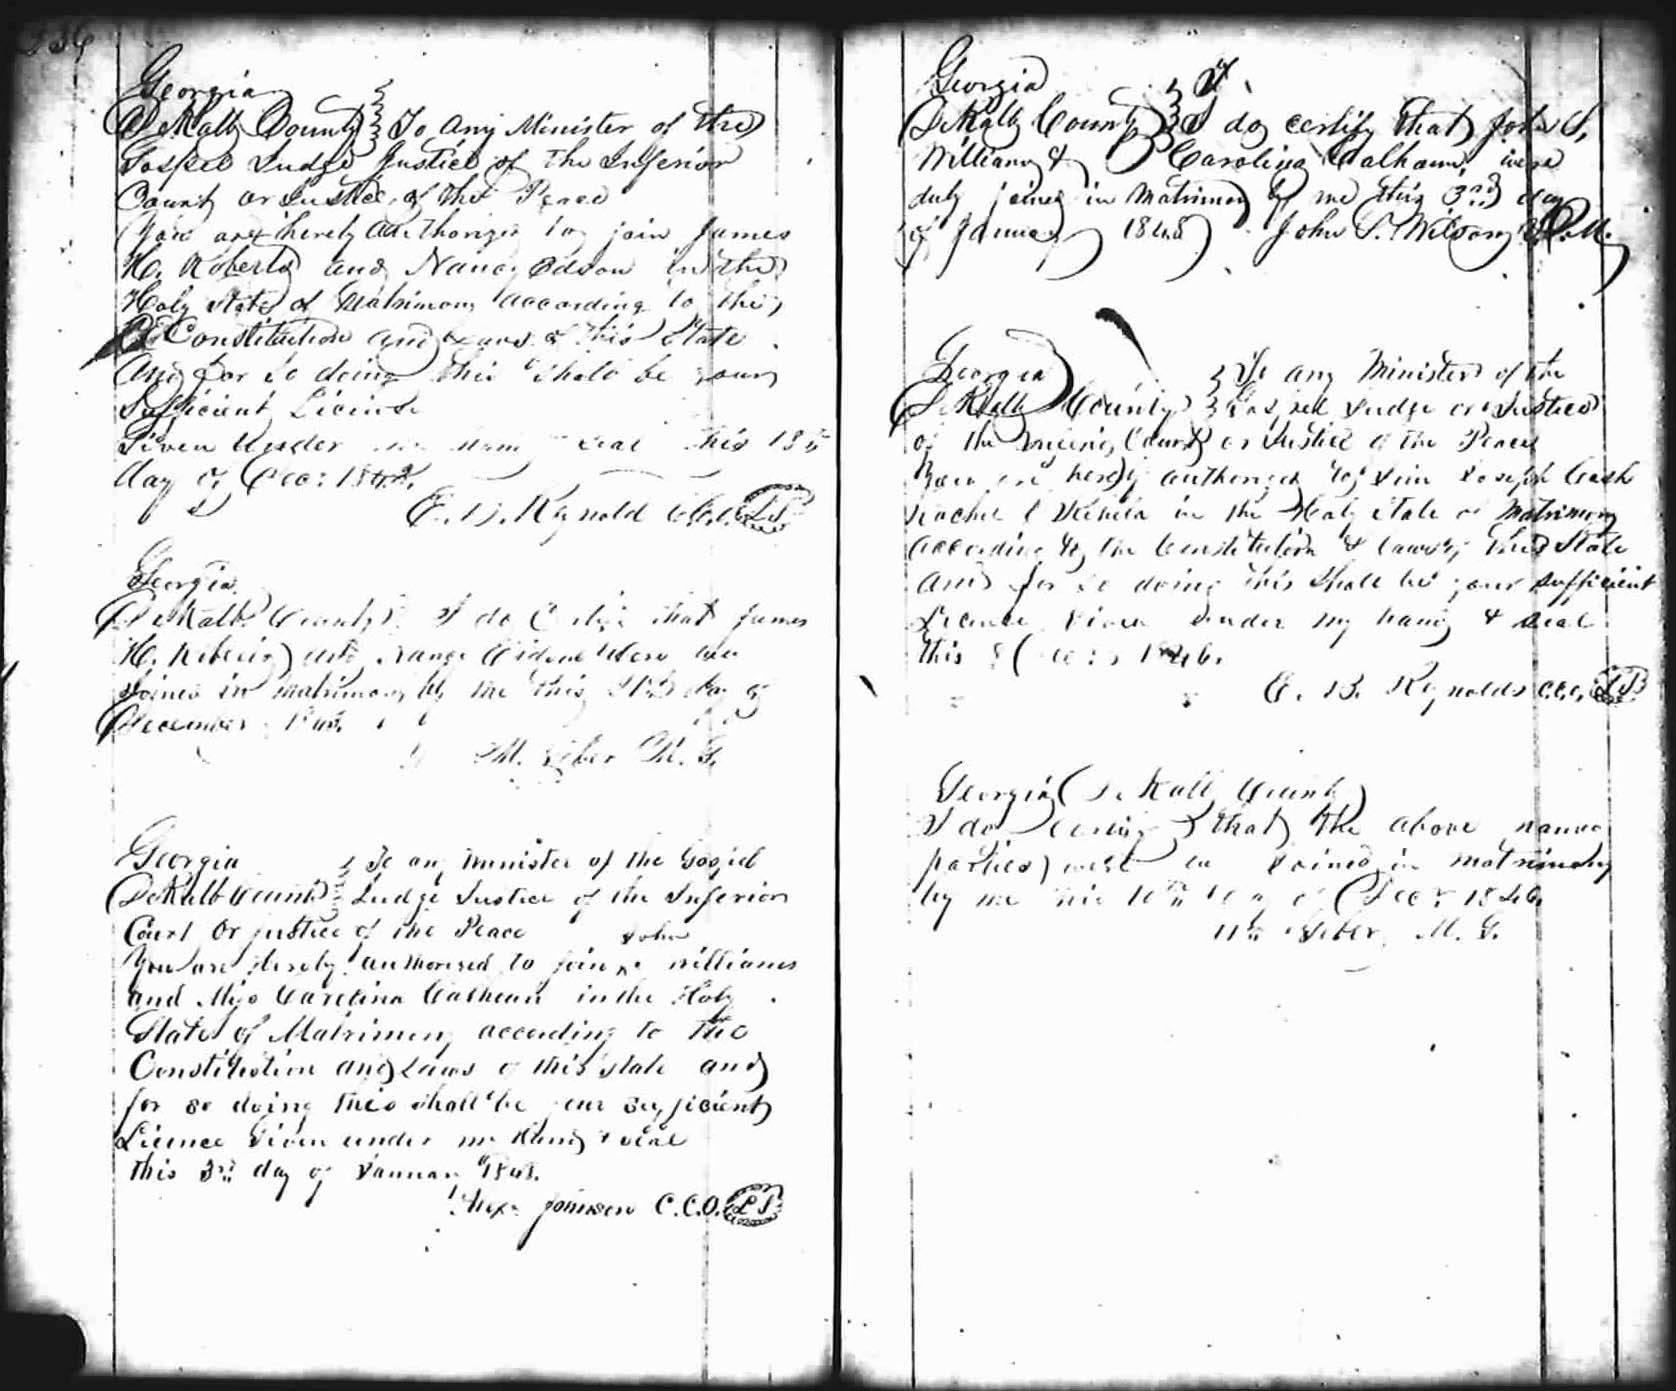 Georgia
DeKalb County To any Minister of the
Gospel Judge Justice of the Inferior
Court or Justice of the Peace
You are hereby authorized to join James
H. Roberts and Nancy in the
Holy State of Matrimony according to the
Constitution and Laws of this State
And for so doing this shall be your
Sufficient License
Given Under this 18th
day of Dec:
E. B. Reynolds C.C.O. LS
Georgia
DeKalb County I do that James
H. and were
Joined in matrimony by me this day of
December
M. G.
Georgia To any minister of the Gospel
DeKalb County Judge Justice of the Inferior
Court Or justice of the Peace
John
You are hereby authorised to join ^ Williams
and Miss Carolina Calhoun in the Holy
State of Matrimony according to the
Constitution and Laws of this state and
for so doing this shall be your sufficient
Licence Given under my hand & seal
this 3rd day of January 1848.
Alexr Johnson C.C.O. LS
Georgia
DeKalb County I do certify that John S.
Williams & Carolina Calhoun, were
duly joined in Matrimony by me this 3rd day
of January 1848 John S. Wilson
Georgia To any Minister of the
DeKalb County Gospel Judge or Justice
of the Court or Justice of the Peace
You are hereby authorized to Join Joseph Cash
Rachel in the Holy State of Matrimony
according to the Constitution & Laws of this State
and for so doing this shall be your sufficient
Licence Given under my hand & seal
this 1846.
E. B. Reynolds C.C.O. LS
Georgia DeKalb County
I do that the above named
parties were Joined in matrimony
by me this 10th of Dec: 1846
M. G.